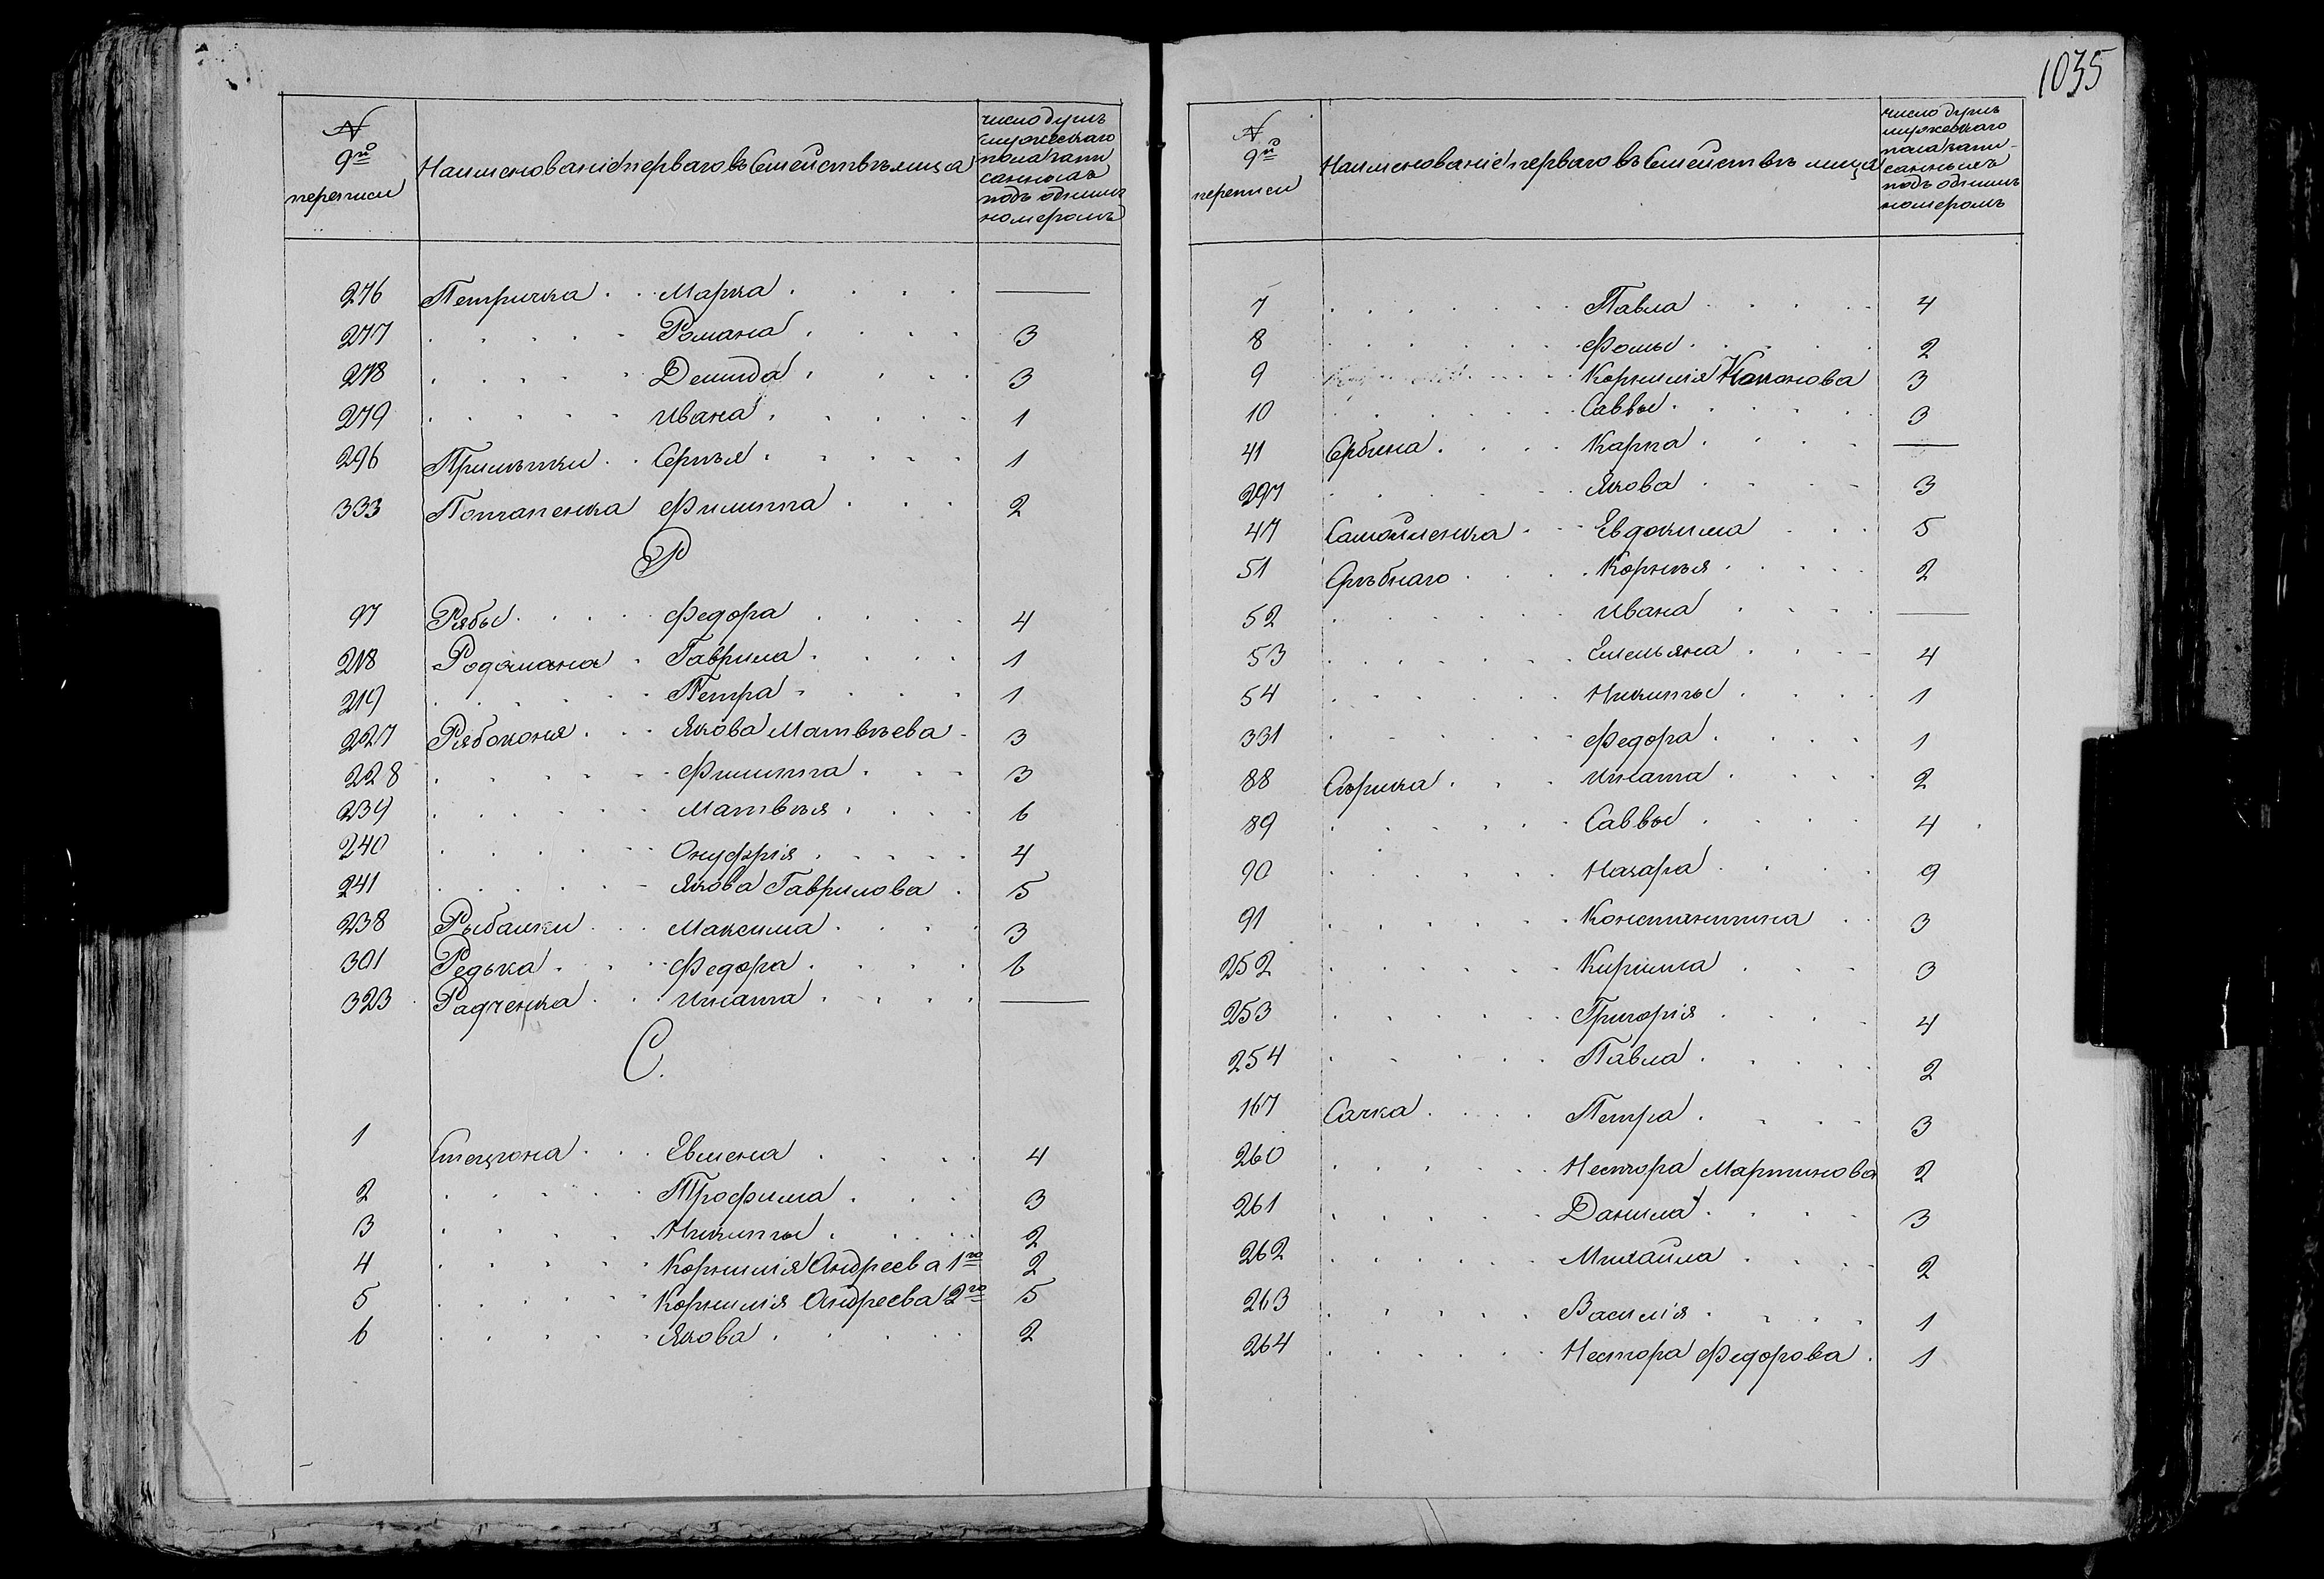 1035
№ 9й переписи
Наименованіе перваго въ Семействѣ лица
число душъ мужескаго пола запи санныхъ подъ однимъ номеромъ
276 Петричка . . Марка . . . . —
277 . . . . . Романа . . . . 3
278 . . . . . Демида . . . . 3
279 . . . . . Ивана . . . . 1
296 . . Сергѣя . . . . . 1
333 Филиппа . . . 2
Р
97 Рябы . . . . Федора . . . . 4
218 Родомана . Гаврила . . . . 1
219 . . . . . Петра . . . . 1
227 Рябоконя . . . Якова Матвѣева . 3
228 . . . . . Филиппа . . . 3
239 . . . . . Матвѣя . . . . 6
240 . . . . . Онуфрія . . . . . 4
241 . . . . . Якова Гаврилова . 5
238 Рыбалки . . . Максима . . . . 3
301 Редька . . . . Федора . . . . 6
323 Радченка . . . Игната . . . . —
С.
1 Стецюна . . . Евмена . . . . 4
2 . . . . . Трофима . . . 3
3 . . . . . Никиты . . . . 2
4 . . . . . Корнилія Андреева 1го 2
5 . . . . . Корнилія Андреева 2го 5
6 . . . . . Якова . . . . . 2
№ 9й переписи
Наименованіе перваго въ Семействѣ лица
число душъ мужескаго пола запи- санныхъ подъ однимъ номеромъ
7 . . . . . . Павла . . . . 4
8 . . . . . . Фомы . . . . 2
9 . . . . Корнилія Кононова 3
10 . . . . . . Саввы . . . . . 3
41 Сербина . . . . Карпа . . . . —
297 . . . . . . Якова . . . . 3
47 Самойленка . . Евдокима . . . 5
51 . . . . Корнѣя . . . . . 2
52 . . . . . . Ивана . . . . —
53 . . . . . . Емельяна . . . . 4
54 . . . . . . Никиты . . . . 1
331 . . . . . . Федора . . . . 1
88 Сѣрика . . . Игната . . . . 2
89 . . . . . . Саввы . . . . 4
90 . . . . . . Назара . . . . 9
91 . . . . . . Константина . . 3
252 . . . . . . Кирилла . . . 3
253 . . . . . . Григорія . . . . 4
254 . . . . . . Павла . . . . . 2
167 Сачка . . . . Петра . . . . 3
260 . . . . . . Нестора Мартинова 2
261 . . . . . Данила . . . . 3
262 . . . . . Михайла . . . . 2
263 . . . . . Василія . . . . 1
264 . . . . . . Нестора Федорова . 1